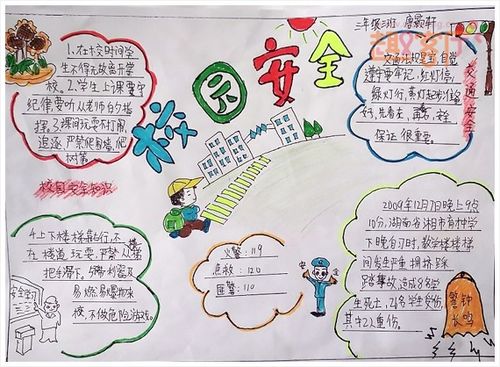 三年级二班 唐颢轩
校园安全
1、在校时间学
生不得无故离开学
校。2、学生上课要守
纪律,要听从老师的指
挥。3、课间玩耍不打闹、
追逐、严禁爬围墙、爬
树等。
校园安全知识
交通法规是宝,自觉
遵守要牢记,红灯停,
绿灯行,黄灯
好,先看左,再看右,安全
保证很重要。
交通安全
4、上下楼梯靠右行,不
在楼道玩耍,严禁从
把手滑下,
易燃易爆物来
校,不做危险游戏。
安全学习
火警:119
急救:120
匪警:110
2009年12月7日晚上9点
10分,湖南省湘乡市育才中学
下晚自习时,教学楼楼梯
间发生严重拥挤踩
踏事故,造成8名学
生死亡,26名学生受伤,
其中2人重伤。
警钟
长鸣